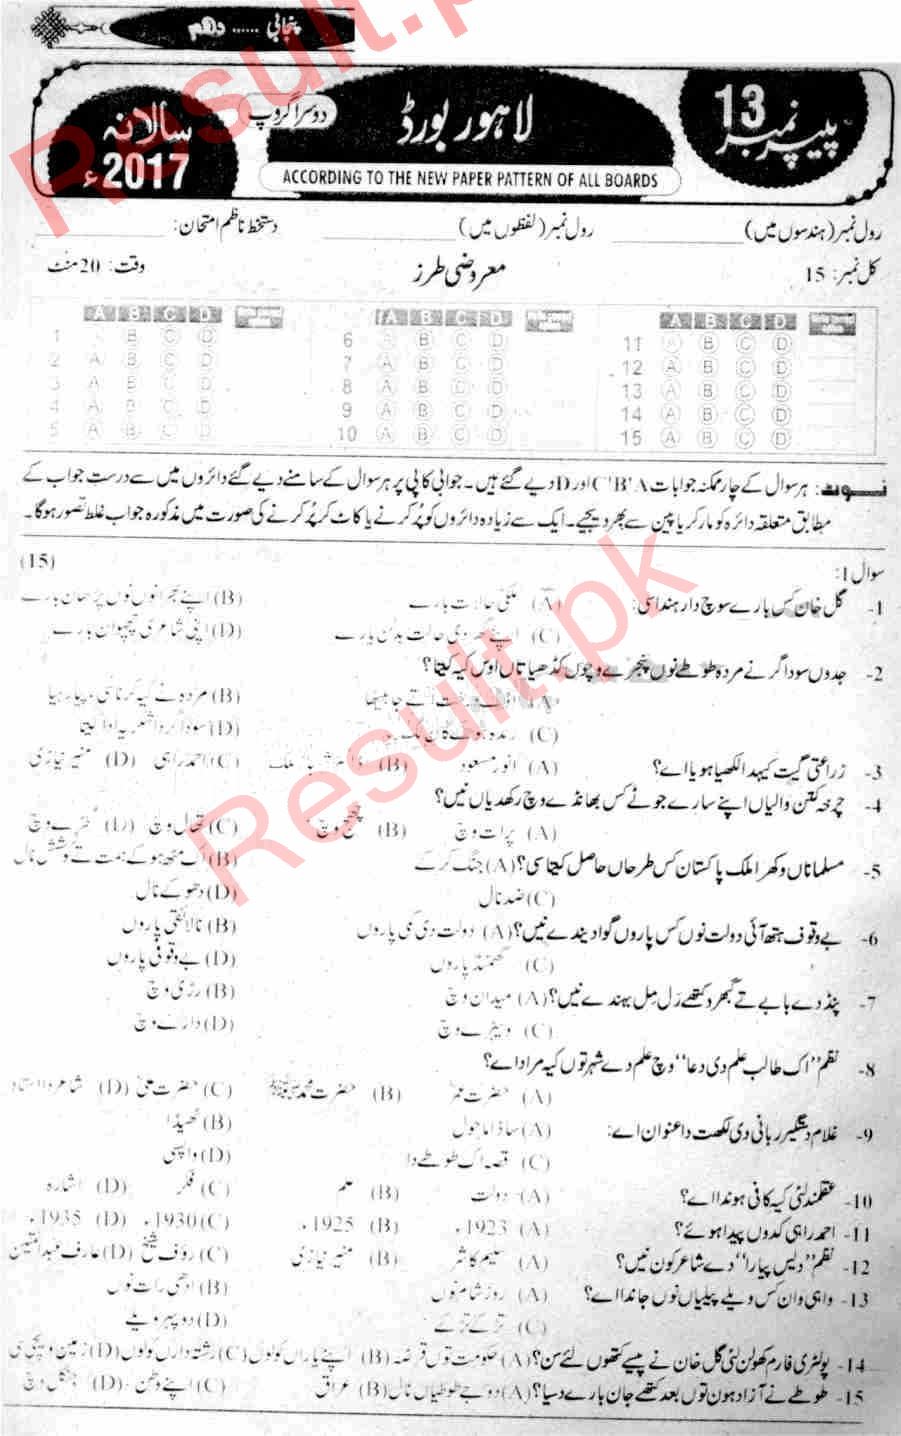 پنجابی ...... دہم
پیپر نمبر 13
لاہور بورڈ
دوسرا گروپ
سالانہ 2017ء
ACCORDING TO THE NEW PAPER PATTERN OF ALL BOARDS
رول نمبر (ہندسوں میں) ____________ رول نمبر (لفظوں میں) ____________ دستخط ناظم امتحان: ____________
کل نمبر: 15 معروضی طرز وقت: 20 منٹ
A B C D A B C D A B C D
1 B C D 6 A B C D 11 A B C D
2 A B C D 7 A B C D 12 A B C D
3 A B C D 8 A B C D 13 A B C D
4 A B C D 9 A B C D 14 A B C D
5 A B C D 10 A B C D 15 A B C D
نوٹ: ہر سوال کے چار ممکنہ جوابات A'B'C اور D دیے گئے ہیں۔ جوابی کاپی پر ہر سوال کے سامنے دیے گئے دائروں میں سے درست جواب کے
مطابق متعلقہ دائرہ کو مارکر یا پین سے بھر دیجیے۔ ایک سے زیادہ دائروں کو پُر کرنے یا کاٹ کر پُر کرنے کی صورت میں مذکورہ جواب غلط تصور ہوگا۔
سوال 1: (15)
1- گل خان کس بارے سوچدار ہندا سی: (A) ملکی حالات بارے (B) اپنے بھرانوں پڑھان بارے
(C) اپنے گھر دی حالت بدلن بارے (D) اپنی شاعری چھپوان بارے
2- جدوں سوداگر نے مردہ طوطے نوں پنجرے وچوں کڈھیا تاں اوس کیہ کیتا؟
(A) اتے جا بیٹھا (B) مردہ نے کیہ کرنا سی، پیا رہیا
(C) زندہ (D) سوداگر دا شکریہ ادا کیتا
3- زراعتی گیت کیہدا لکھیا ہویا اے؟ (A) انور مسعود (B) ملک (C) احمد راہی (D) منیر نیازی
4- چرخہ کتن والیاں اپنے سارے جوٹے کس بھانڈے وچ رکھدیاں نیں؟
(A) پرات وچ (B) چھج وچ (C) تھال وچ (D) وچ
5- مسلماناں وکھرا ملک پاکستان کس طرحاں حاصل کیتا سی؟ (A) جنگ کرکے (B) اک مٹھ ہو کے ہمت تے کوشش نال
(C) ضد نال (D) دھوکے نال
6- بے وقوف ہتھ آئی دولت نوں کس پاروں گوا دیندے نیں؟ (A) دولت دی کمی پاروں (B) نالائقی پاروں
(C) گھمنڈ پاروں (D) بے وقوفی پاروں
7- پنڈ دے بابے تے گبھرو کتھے رَل مِل بہندے نیں؟ (A) میدان وچ (B) رڑی وچ
(C) ویہڑے وچ (D) دارے وچ
8- نظم "اک طالب علم دی دعا" وچ علم دے شہر توں کیہ مراد اے؟
(A) حضرت عمرؓ (B) حضرت محمد ﷺ (C) حضرت علیؓ (D) شاعر دا استاد
9- غلام دستگیر ربانی دی لکھت دا عنوان اے: (A) ساڈا ماحول (B) ٹھیڈا
(C) قصہ اک طوطے دا (D) واپسی
10- عقلمند لئی کیہ کافی ہوندا اے؟ (A) دولت (B) علم (C) فکر (D) اشارہ
11- احمد راہی کدوں پیدا ہوئے؟ (A) 1923ء (B) 1925ء (C) 1930ء (D) 1935ء
12- نظم "دیس پیارا" دے شاعر کون نیں؟ (A) سلیم کاشر (B) منیر نیازی (C) رؤف شیخ (D) عارف عبدالمتین
13- واہی وان کس ویلے پیلیاں نوں جاندا اے؟ (A) روز شام نوں (B) ادھی رات نوں
(C) تڑکے تڑکے (D) دوپہر ویلے
14- پولٹری فارم کھولن لئی گل خان نے پیسے کتھوں لئے سن؟ (A) حکومت توں قرضہ (B) اپنے یاراں کولوں (C) رشتہ داراں کولوں (D) زمین ویچی سی
15- طوطے نے آزاد ہون توں بعد کتھے جان بارے دسیا؟ (A) دوجے طوطیاں نال (B) عراق (C) اپنے وطن (D) جنگل وچ
Result.pk
Result.pk